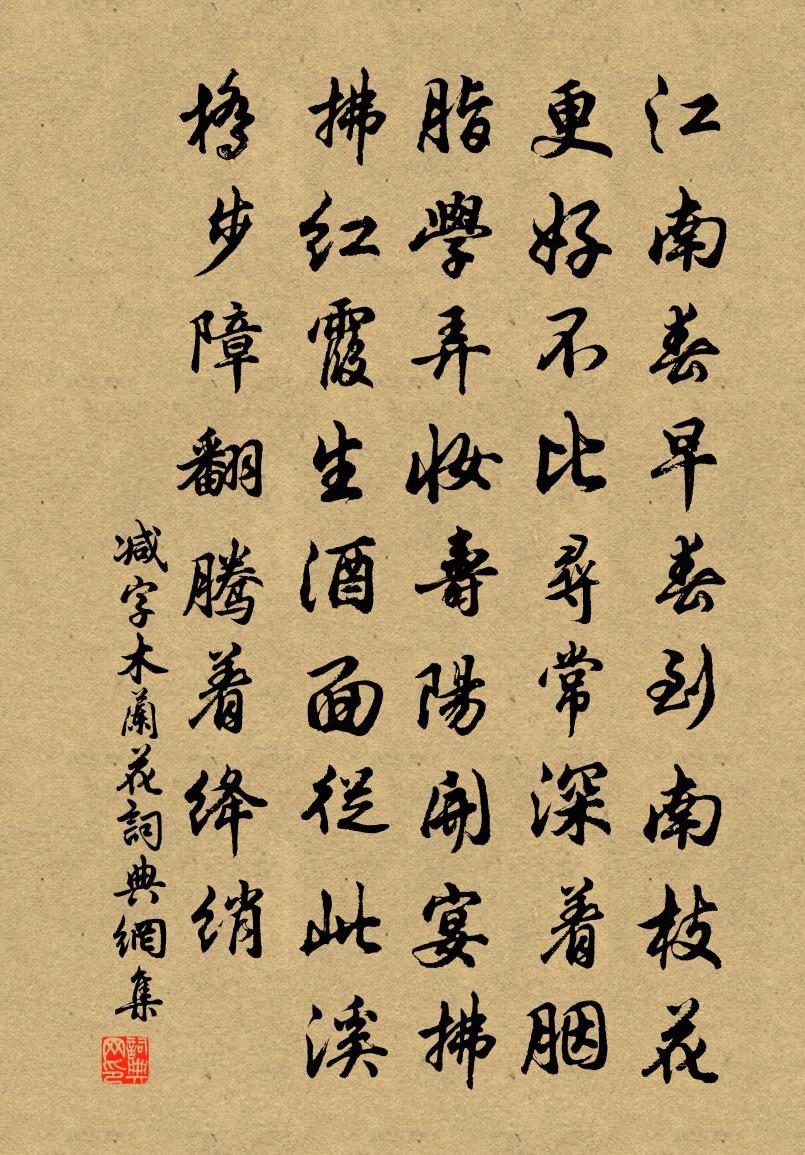 江南春早春到南枝花
更好不比尋常深着胭
脂學弄妝壽陽開宴拂
拂紅霞生酒面從此溪
橋步障翻騰着绛绡
减字木蘭花詞典網集
詞典网印